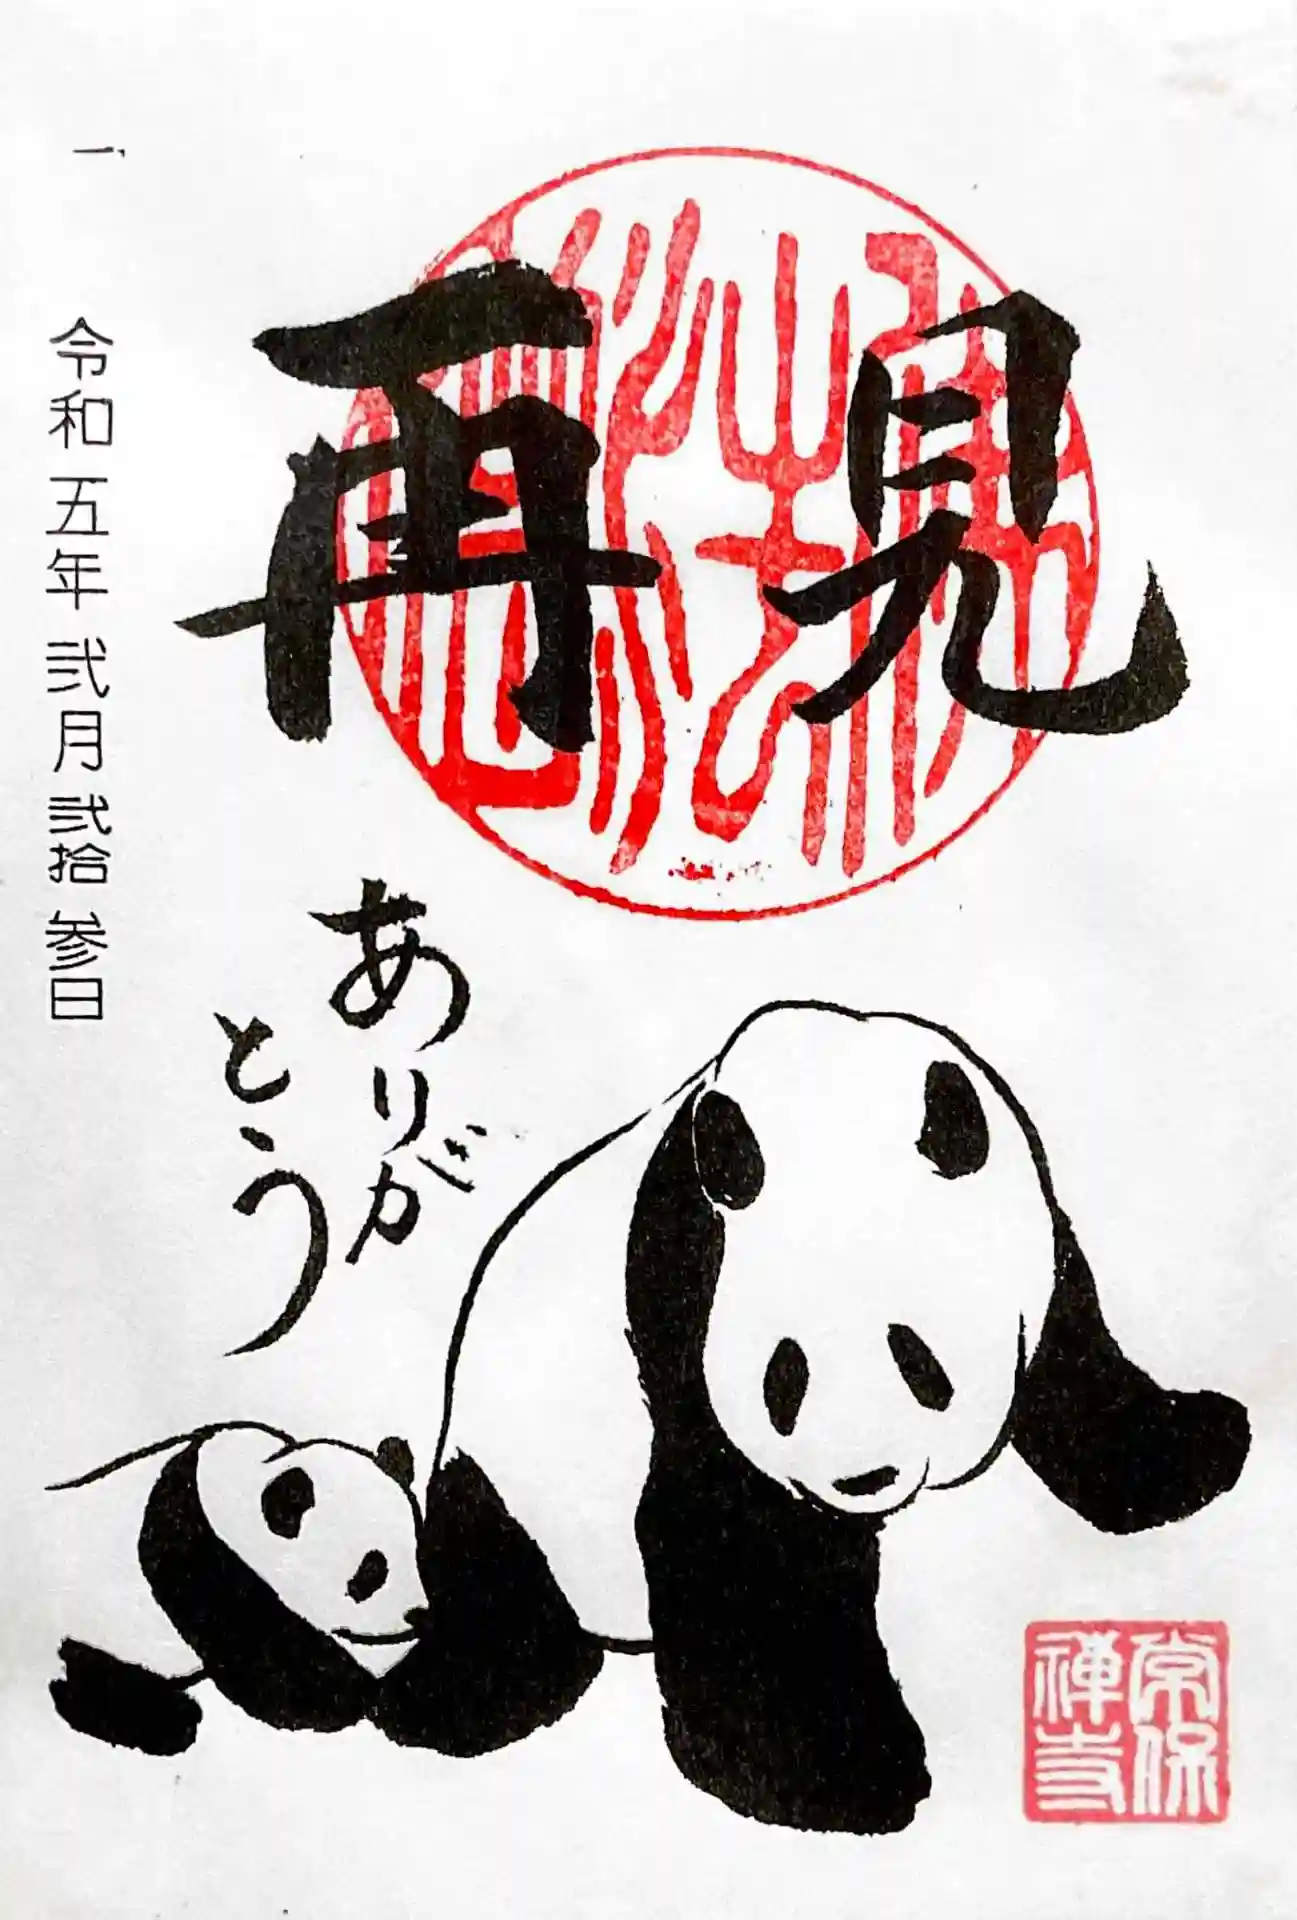 再見
ありが
とう
令和五年弐月弐拾参日
常保
禅寺